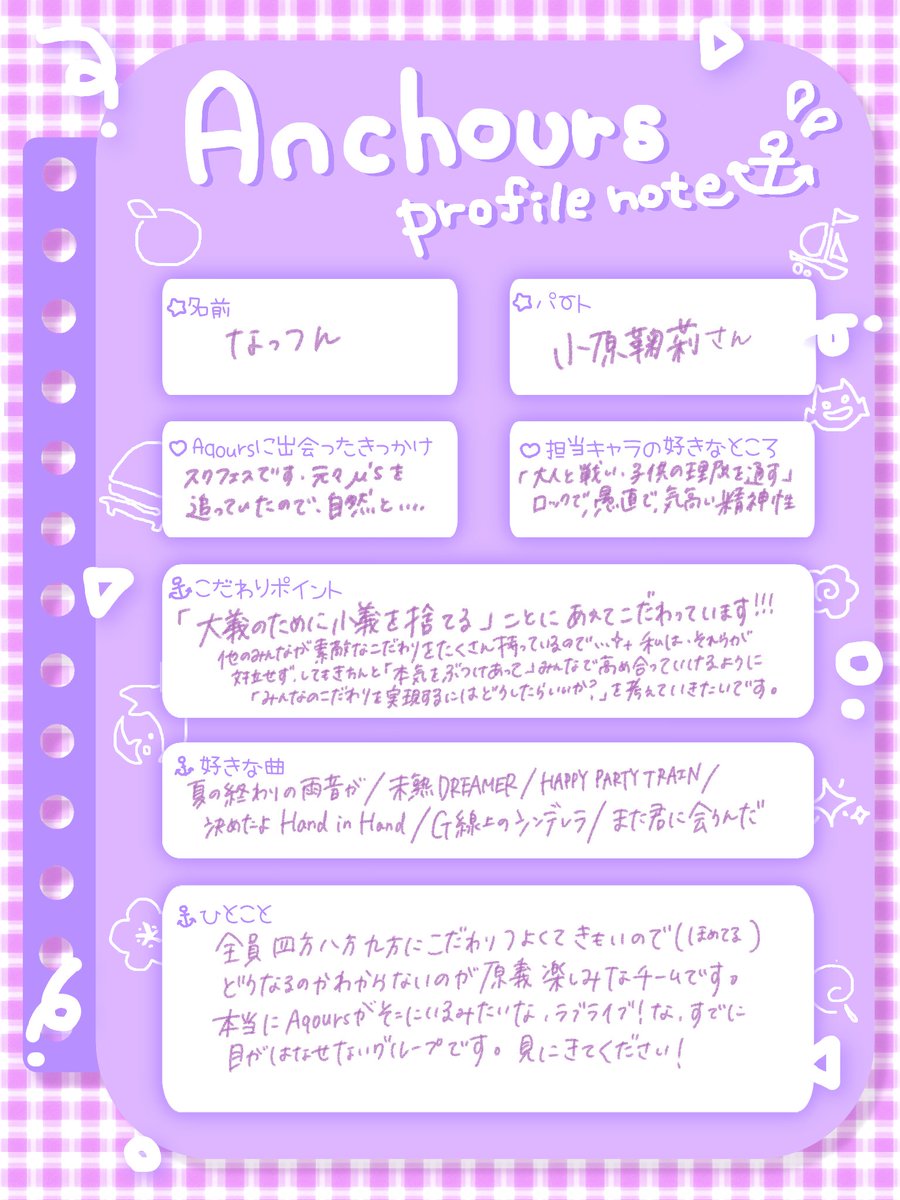 Anchours
profile note
名前
なっつん
パート
小原鞠莉さん
Aqoursに出会ったきっかけ
スクフェスです.元々μ'sを
追っていたので、自然と....
担当キャラの好きなところ
「大人と戦い、子供の理屈を通す」
ロックで,愚直で,気高い精神性
こだわりポイント
「大義のために小義を捨てる」ことにあえてこだわっています!!!
他のみんなが素敵なこだわりをたくさん持っているので…、私は、それらが
対立せず,してもきちんと「本気をぶつけあって」みんなで高め合っていけるように
「みんなのこだわりを実現するにはどうしたらいいか?」を考えていきたいです。
好きな曲
夏の終わりの雨音が/未熟DREAMER/HAPPY PARTY TRAIN/
決めたよ Hand in Hand/G線上のシンデレラ/また君に会うんだ
ひとこと
全員四方八方九方にこだわりつよくてきもいので(ほめてる)
どうなるのかわからないのが原義楽しみなチームです。
本当にAqoursがそこにいるみたいな、ラブライブ!な、すでに
目がはなせないグループです。見にきてください!